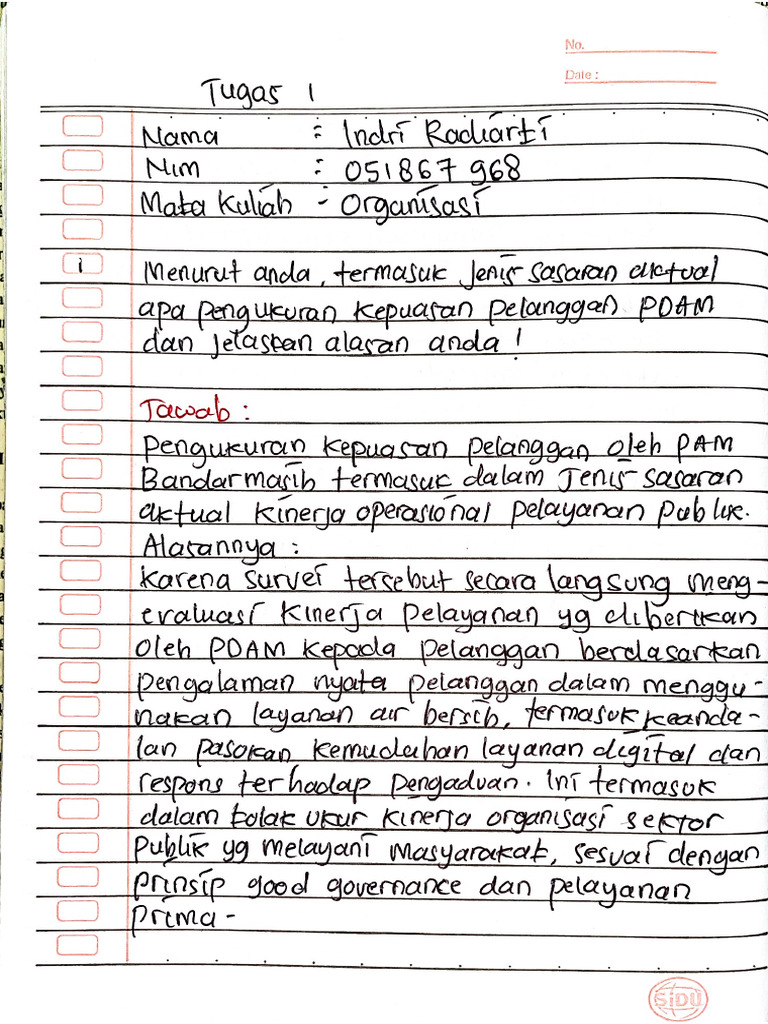 No.
Date :
Tugas 1
Nama : Indri Radiarti
Nim : 051867968
Mata Kuliah : Organisasi
1 Menurut anda, termasuk jenis sasaran aktual
apa pengukuran kepuasan pelanggan PDAM
dan jelaskan alasan anda !
Jawab :
Pengukuran kepuasan pelanggan oleh PAM
Bandarmasih termasuk dalam jenis sasaran
aktual kinerja operasional pelayanan publik.
Alasannya :
Karena survei tersebut secara langsung meng-
evaluasi kinerja pelayanan yg diberikan
oleh PDAM kepada pelanggan berdasarkan
pengalaman nyata pelanggan dalam menggu-
nakan layanan air bersih, termasuk keanda-
lan pasokan kemudahan layanan digital dan
respons terhadap pengaduan. Ini termasuk
dalam tolak ukur kinerja organisasi sektor
publik yg melayani masyarakat, sesuai dengan
prinsip good governance dan pelayanan
prima -
SiDU